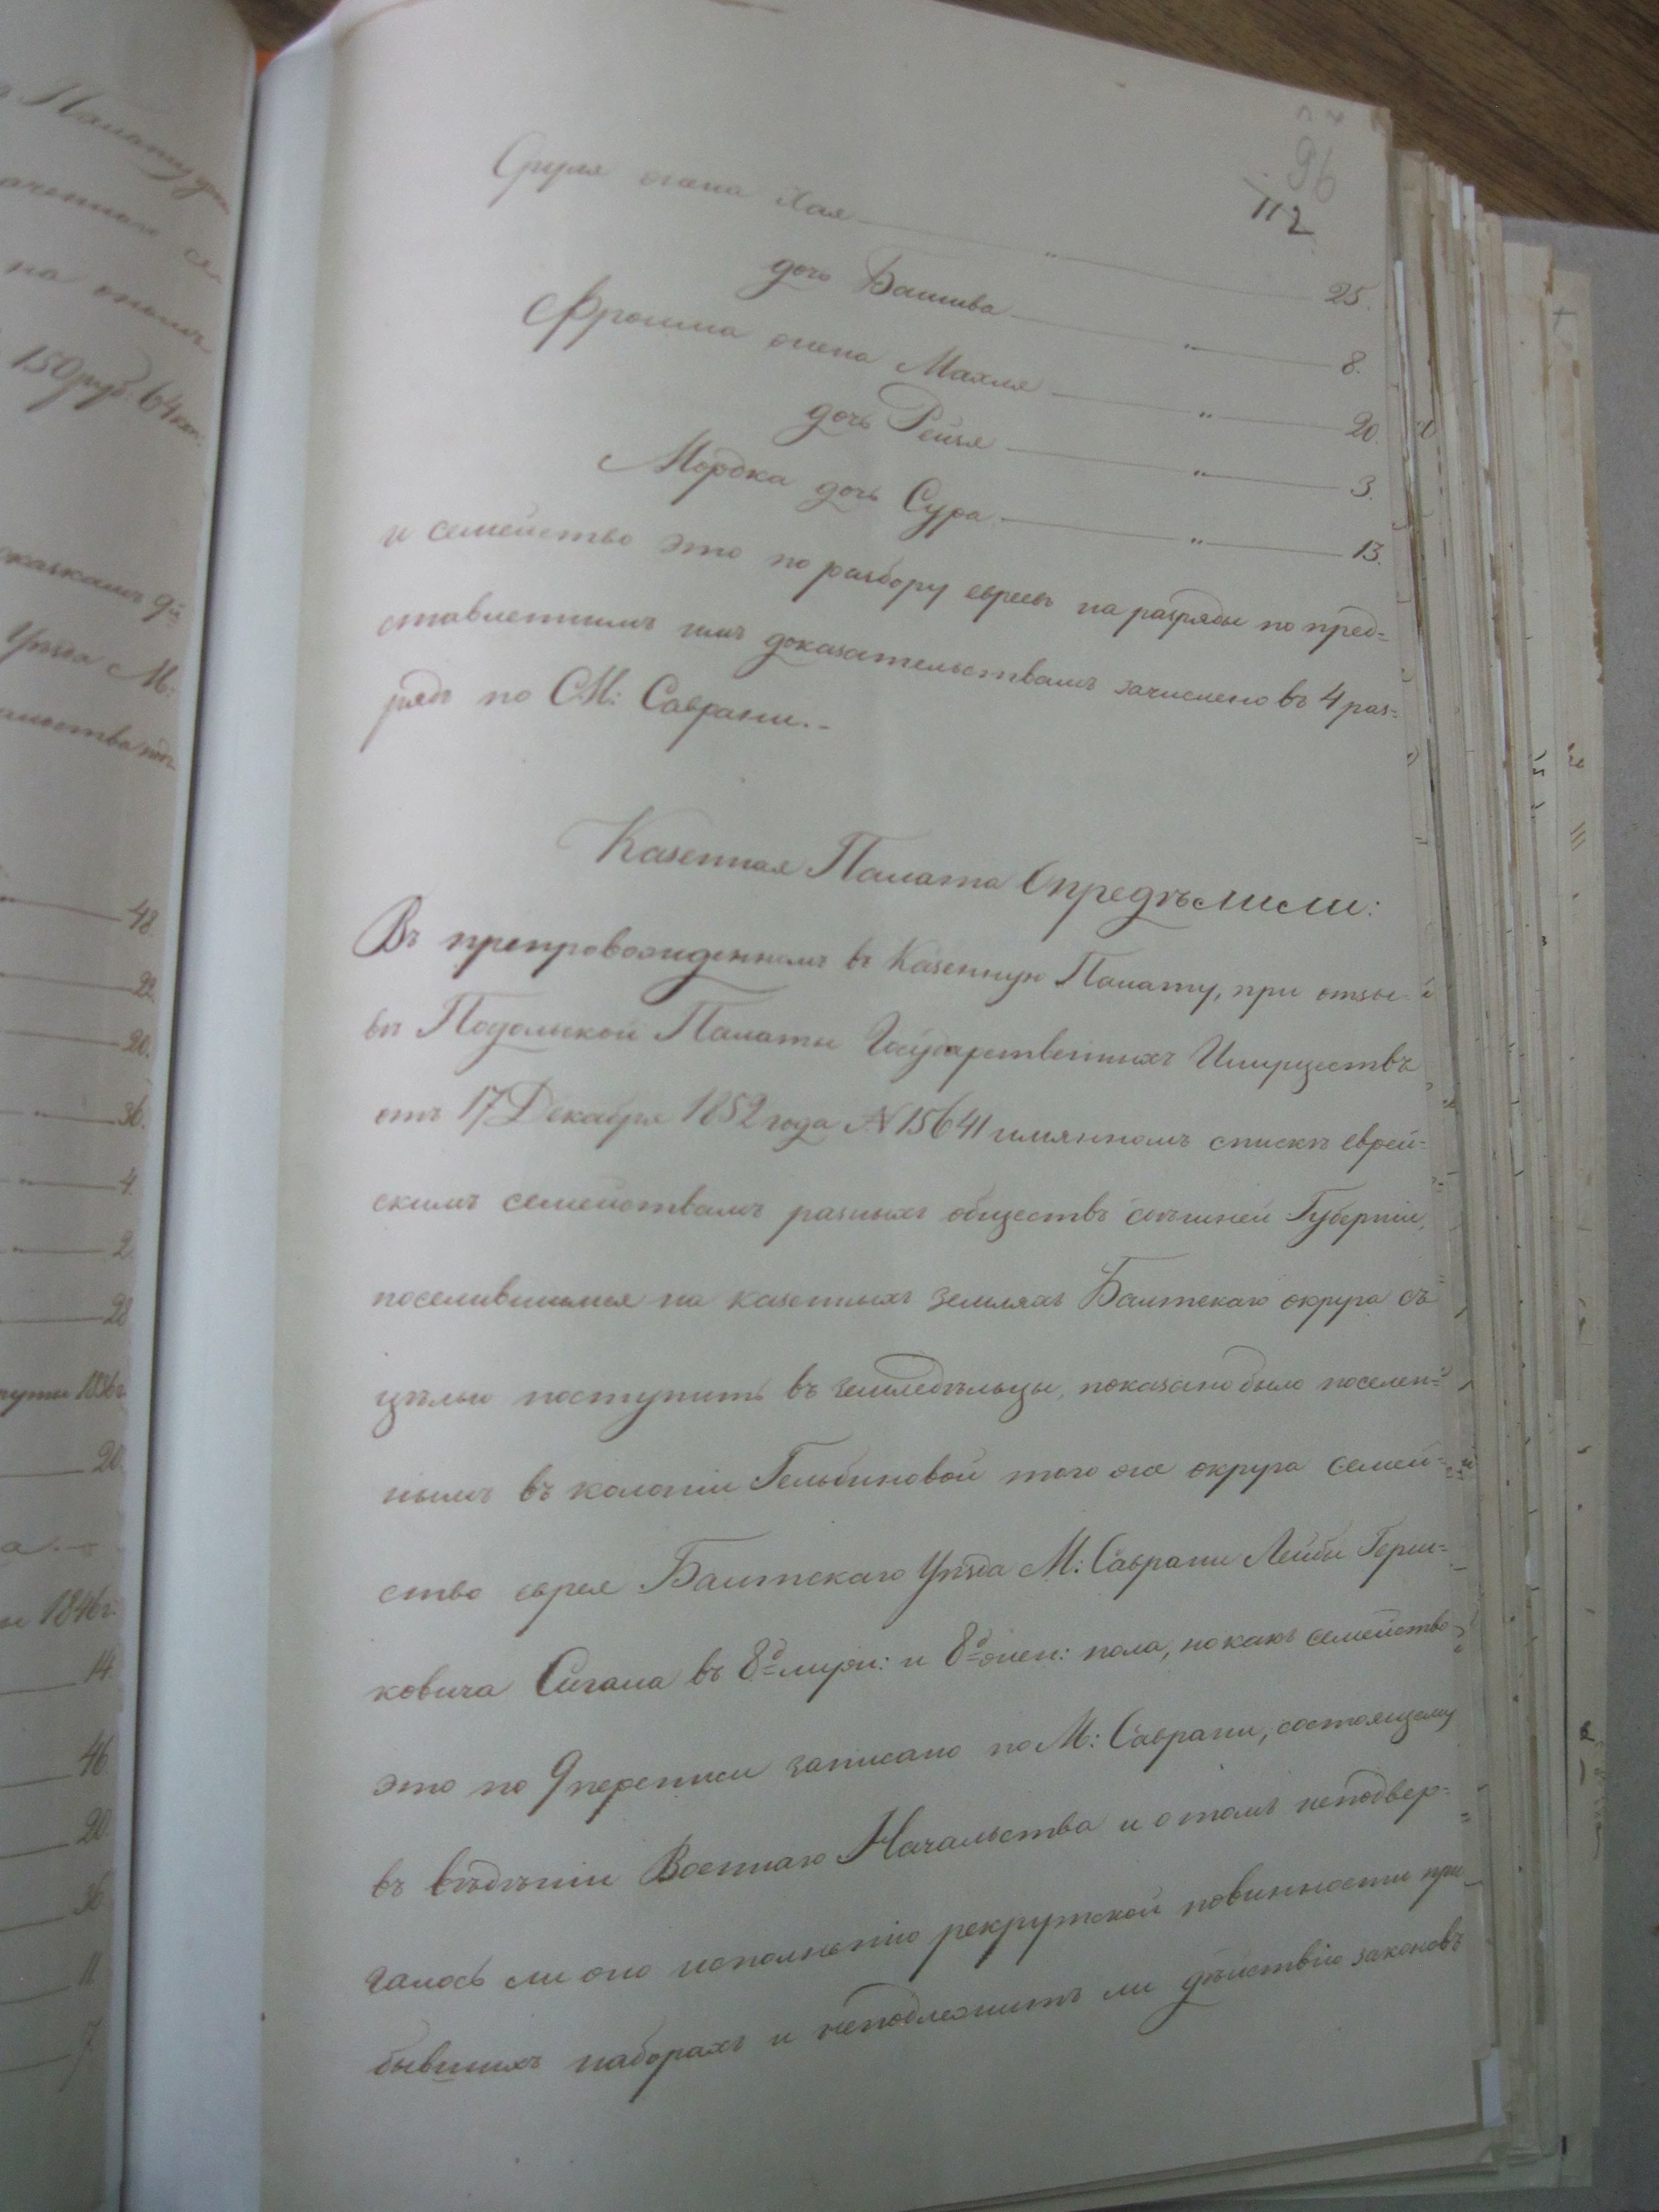 96
112
Сруля жена Хая — " — 25.
дочь Башива — " — 8.
Фроима жена Махля — " — 20.
дочь Рейзя — " — 3.
Мордка дочь Сура — " — 13.
и семейство это по разбору евреевъ на разряды по пред=
ставленнымъ имъ доказательствамъ зачислено въ 4 раз=
рядъ по М: Саврани.-
Казенная Палата Опредѣлили:
Въ препровожденномъ въ Казенную Палату, при отзы
вѣ Подольской Палаты Государственныхъ Имуществъ
отъ 17 Декабря 1852 года N 15641 имянномъ спискѣ еврей=
скимъ семействамъ разныхъ обществъ здѣшней Губерніи,
поселившимся на казенныхъ земляхъ Балтскаго округа съ
цѣлью поступить въ земледѣльцы, показано было поселен=
нымъ въ колоніи Гельбиновой того же округа семей=
ство еврея Балтскаго Уѣзда М: Саврани Лейбы Герш=
ковича Сигала въ 8ъ муж: и 8ъ жен: пола, но какъ семейство
это по 9 переписи записано по М: Саврани, состоящему
въ вѣдѣніи Военнаго Начальства и о томъ неподвер-
галось ли оно исполненію рекрутской повинности при
бывшихъ наборахъ и неподлежитъ ли дѣйствію законовъ
150 руб: 64 коп:
Уѣзда М:
48.
22.
20.
36.
4.
2.
28
1836г.
20.
1846г.
14.
46.
20.
36.
11.
7.